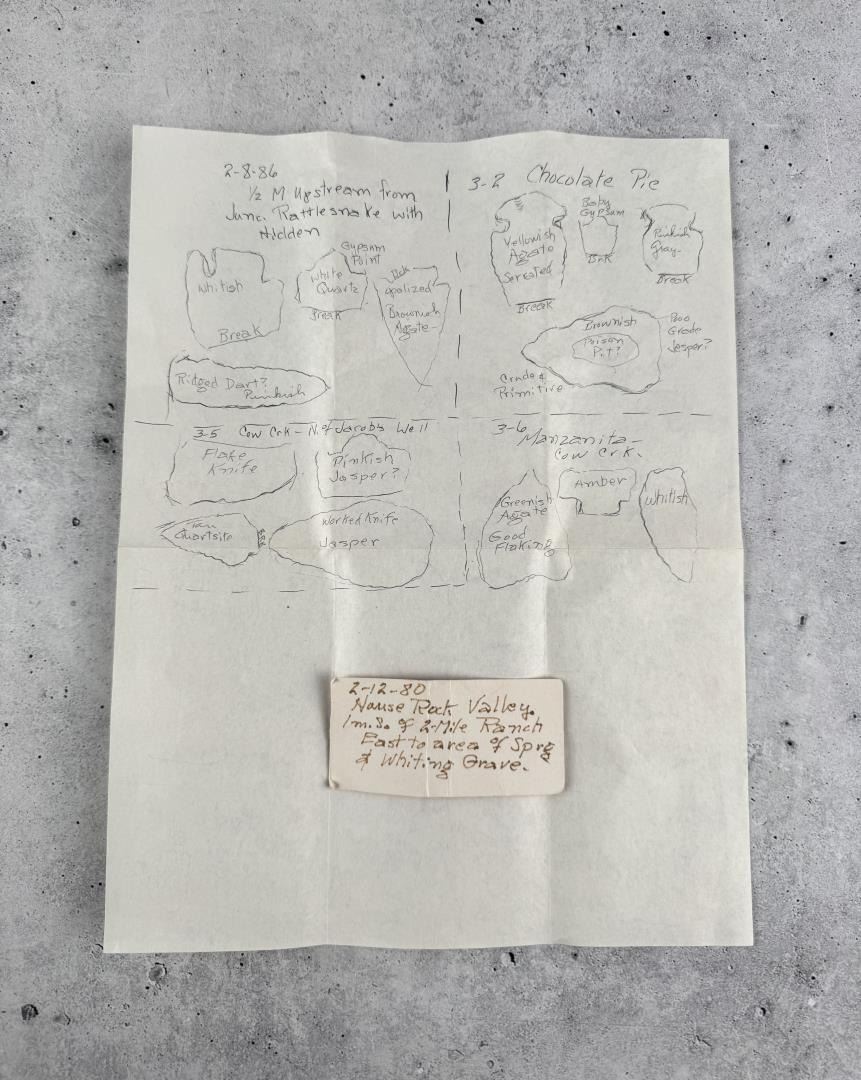 2-8-86
1/2 M Upstream from
Junc. Rattlesnake with
Hidden
Whitish
Break
Gypsum
Point
White
Quartz
Break
Brk
opalized
Brownish
Agate-
Ridged Dart?
Pinkish
3-2 Chocolate Pie
Yellowish
Agate
Serrated
Break
Baby
Gypsum
Brk
Pinkish
Gray-
Break
Brownish
Poison
Pit?
Poo
Grade
Jasper?
Crude &
Primitive
3-5 Cow Crk - N. of Jacobs Well
Flake
Knife
Pinkish
Jasper?
Tan
Quartsite
Brk
Worked Knife
Jasper
3-6
Manzanita-
Cow Crk.
Greenish
Agate
Good
Flaking
Amber
Whitish
2-12-80
House Rock Valley.
1 m. S. of 2-Mile Ranch
East to area of Sprg
& Whiting Grave.